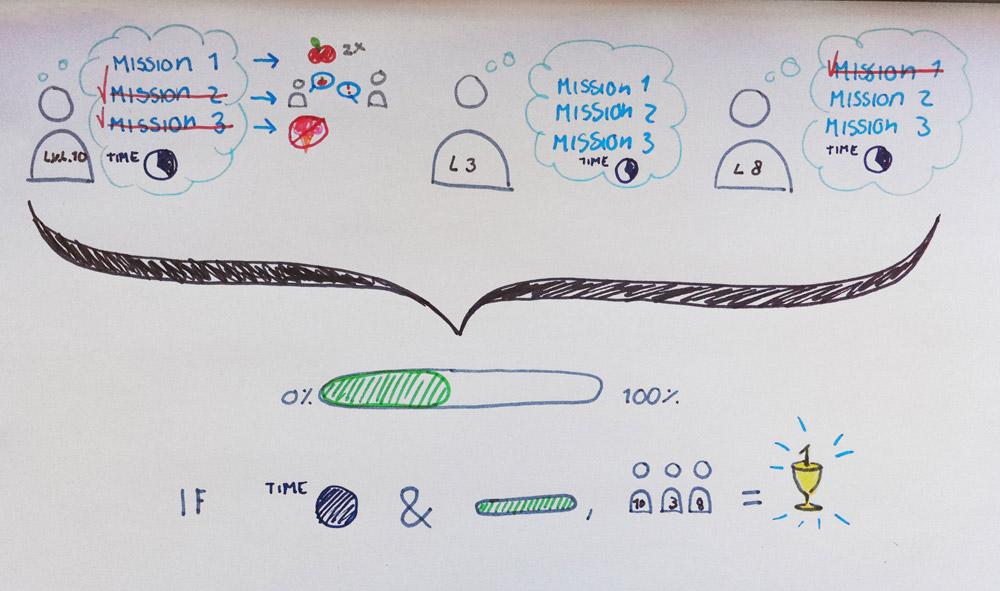 MISSION 1 → 2x
MISSION 2 →
MISSION 3 →
TIME
LVL.10
MISSION 1
MISSION 2
MISSION 3
TIME
L 3
MISSION 1
MISSION 2
MISSION 3
TIME
L 8
0% 100%
IF TIME & , 10 3 8 = 1